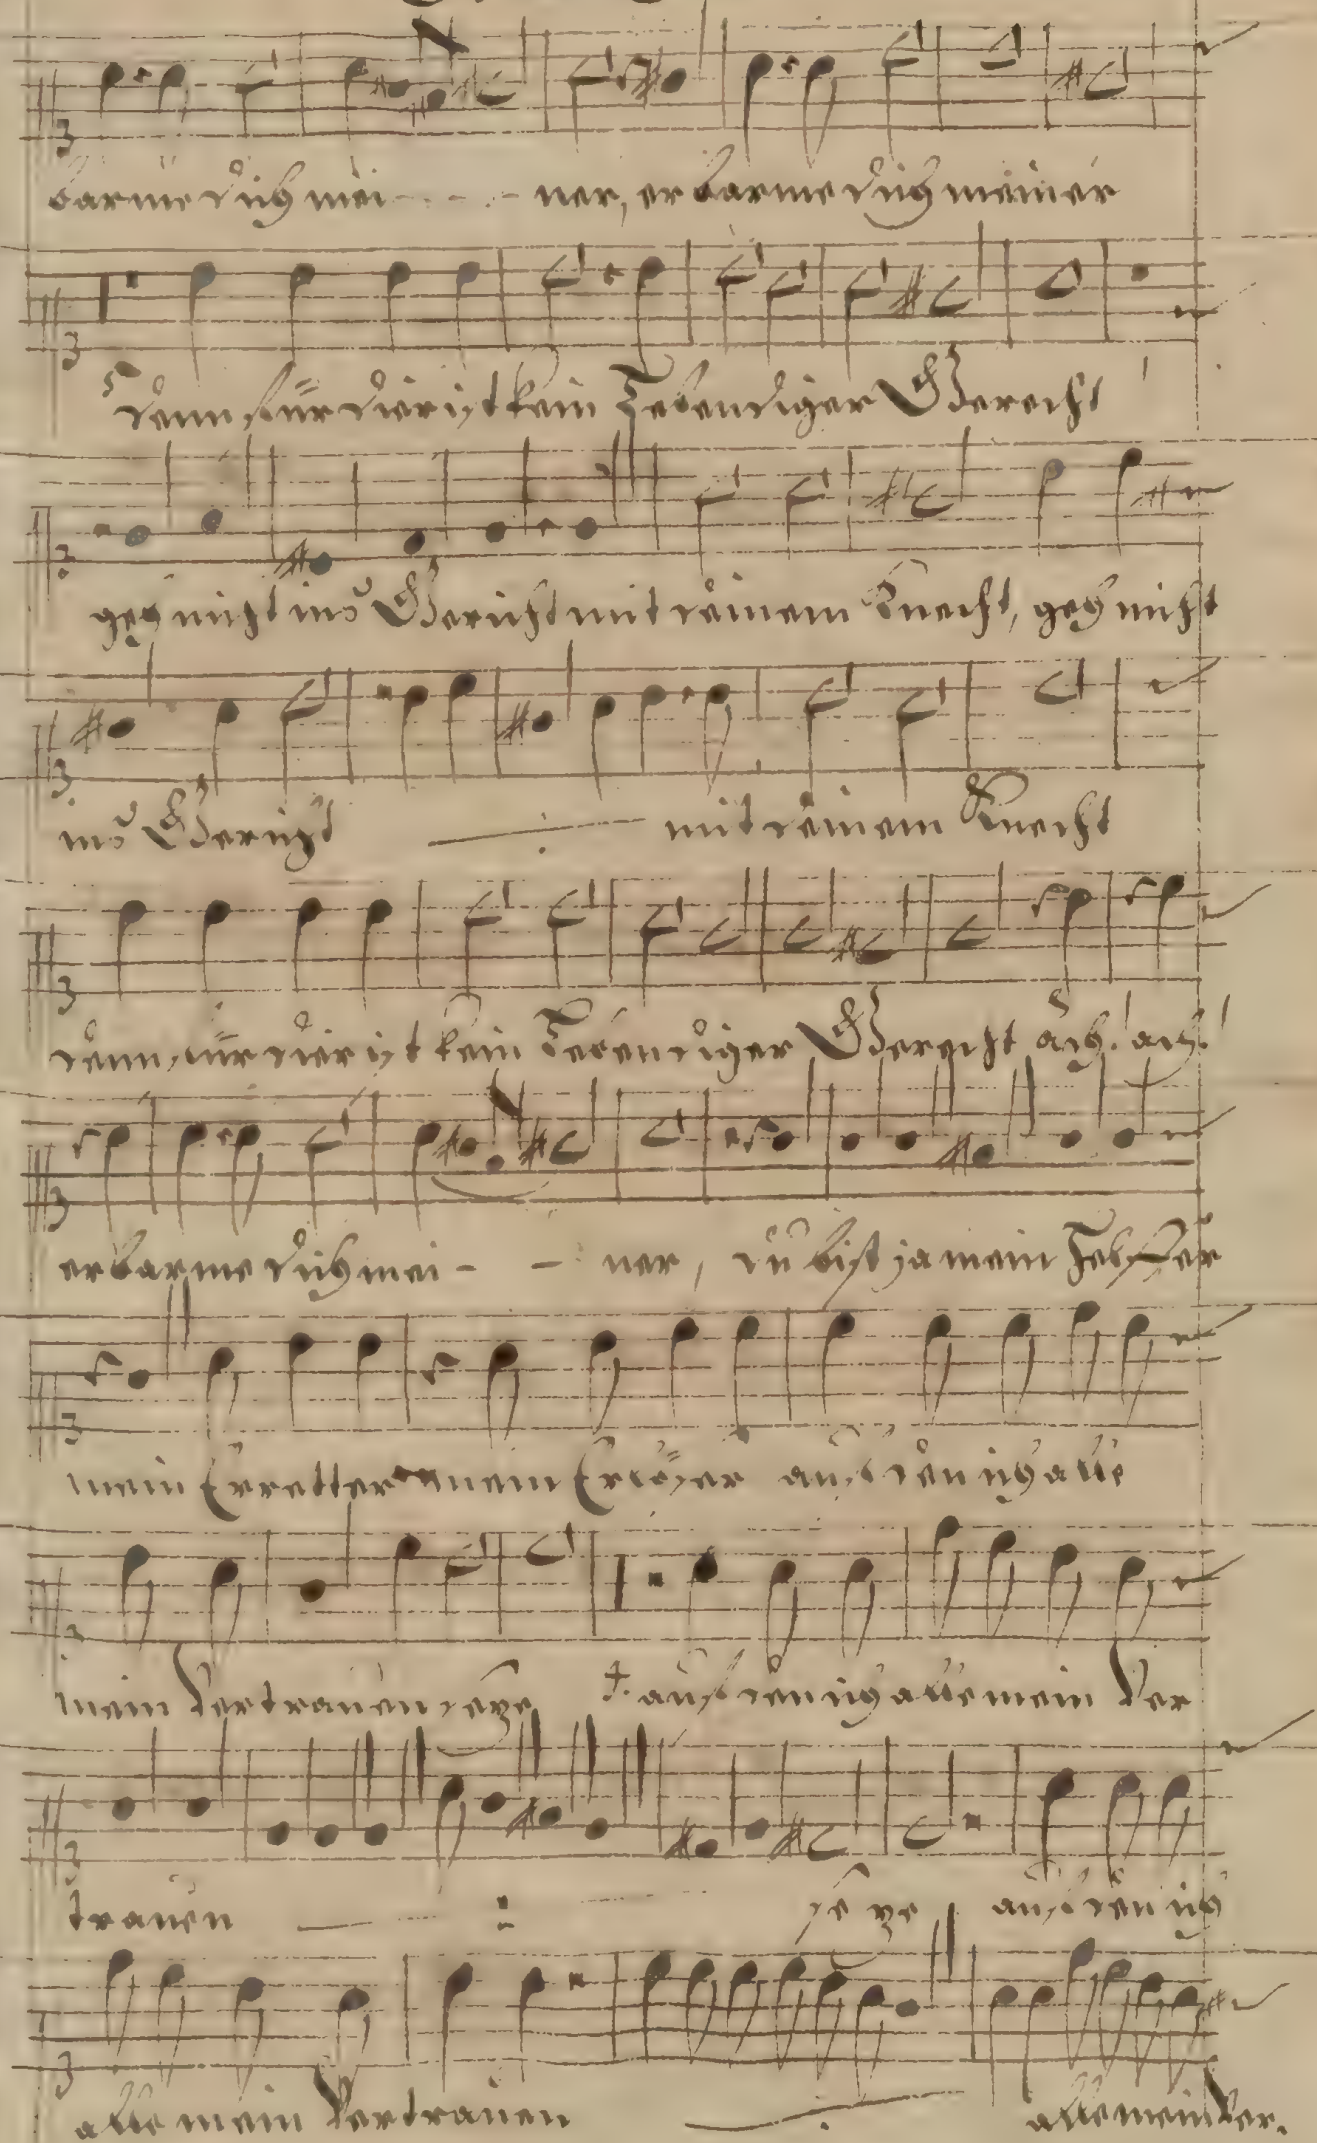 barme dich mei - - - ner, er barme dich meiner
denn für dier ist kein Lebendiger Gerecht
geh nicht ins Gericht mit deinem Knecht, geh nicht
ins Gericht mit deinem Knecht
denn für dier ist kein Lebendiger Gerecht ach! ach!
erbarme dich mei - - ner, du bist ja mein
mein Erretter mein Erlöser auf den ich alle
mein Vertrauen seze auf den ich alle mein Ver
trauen seze auf den ich
alle mein Vertrauen alle mein Ver.